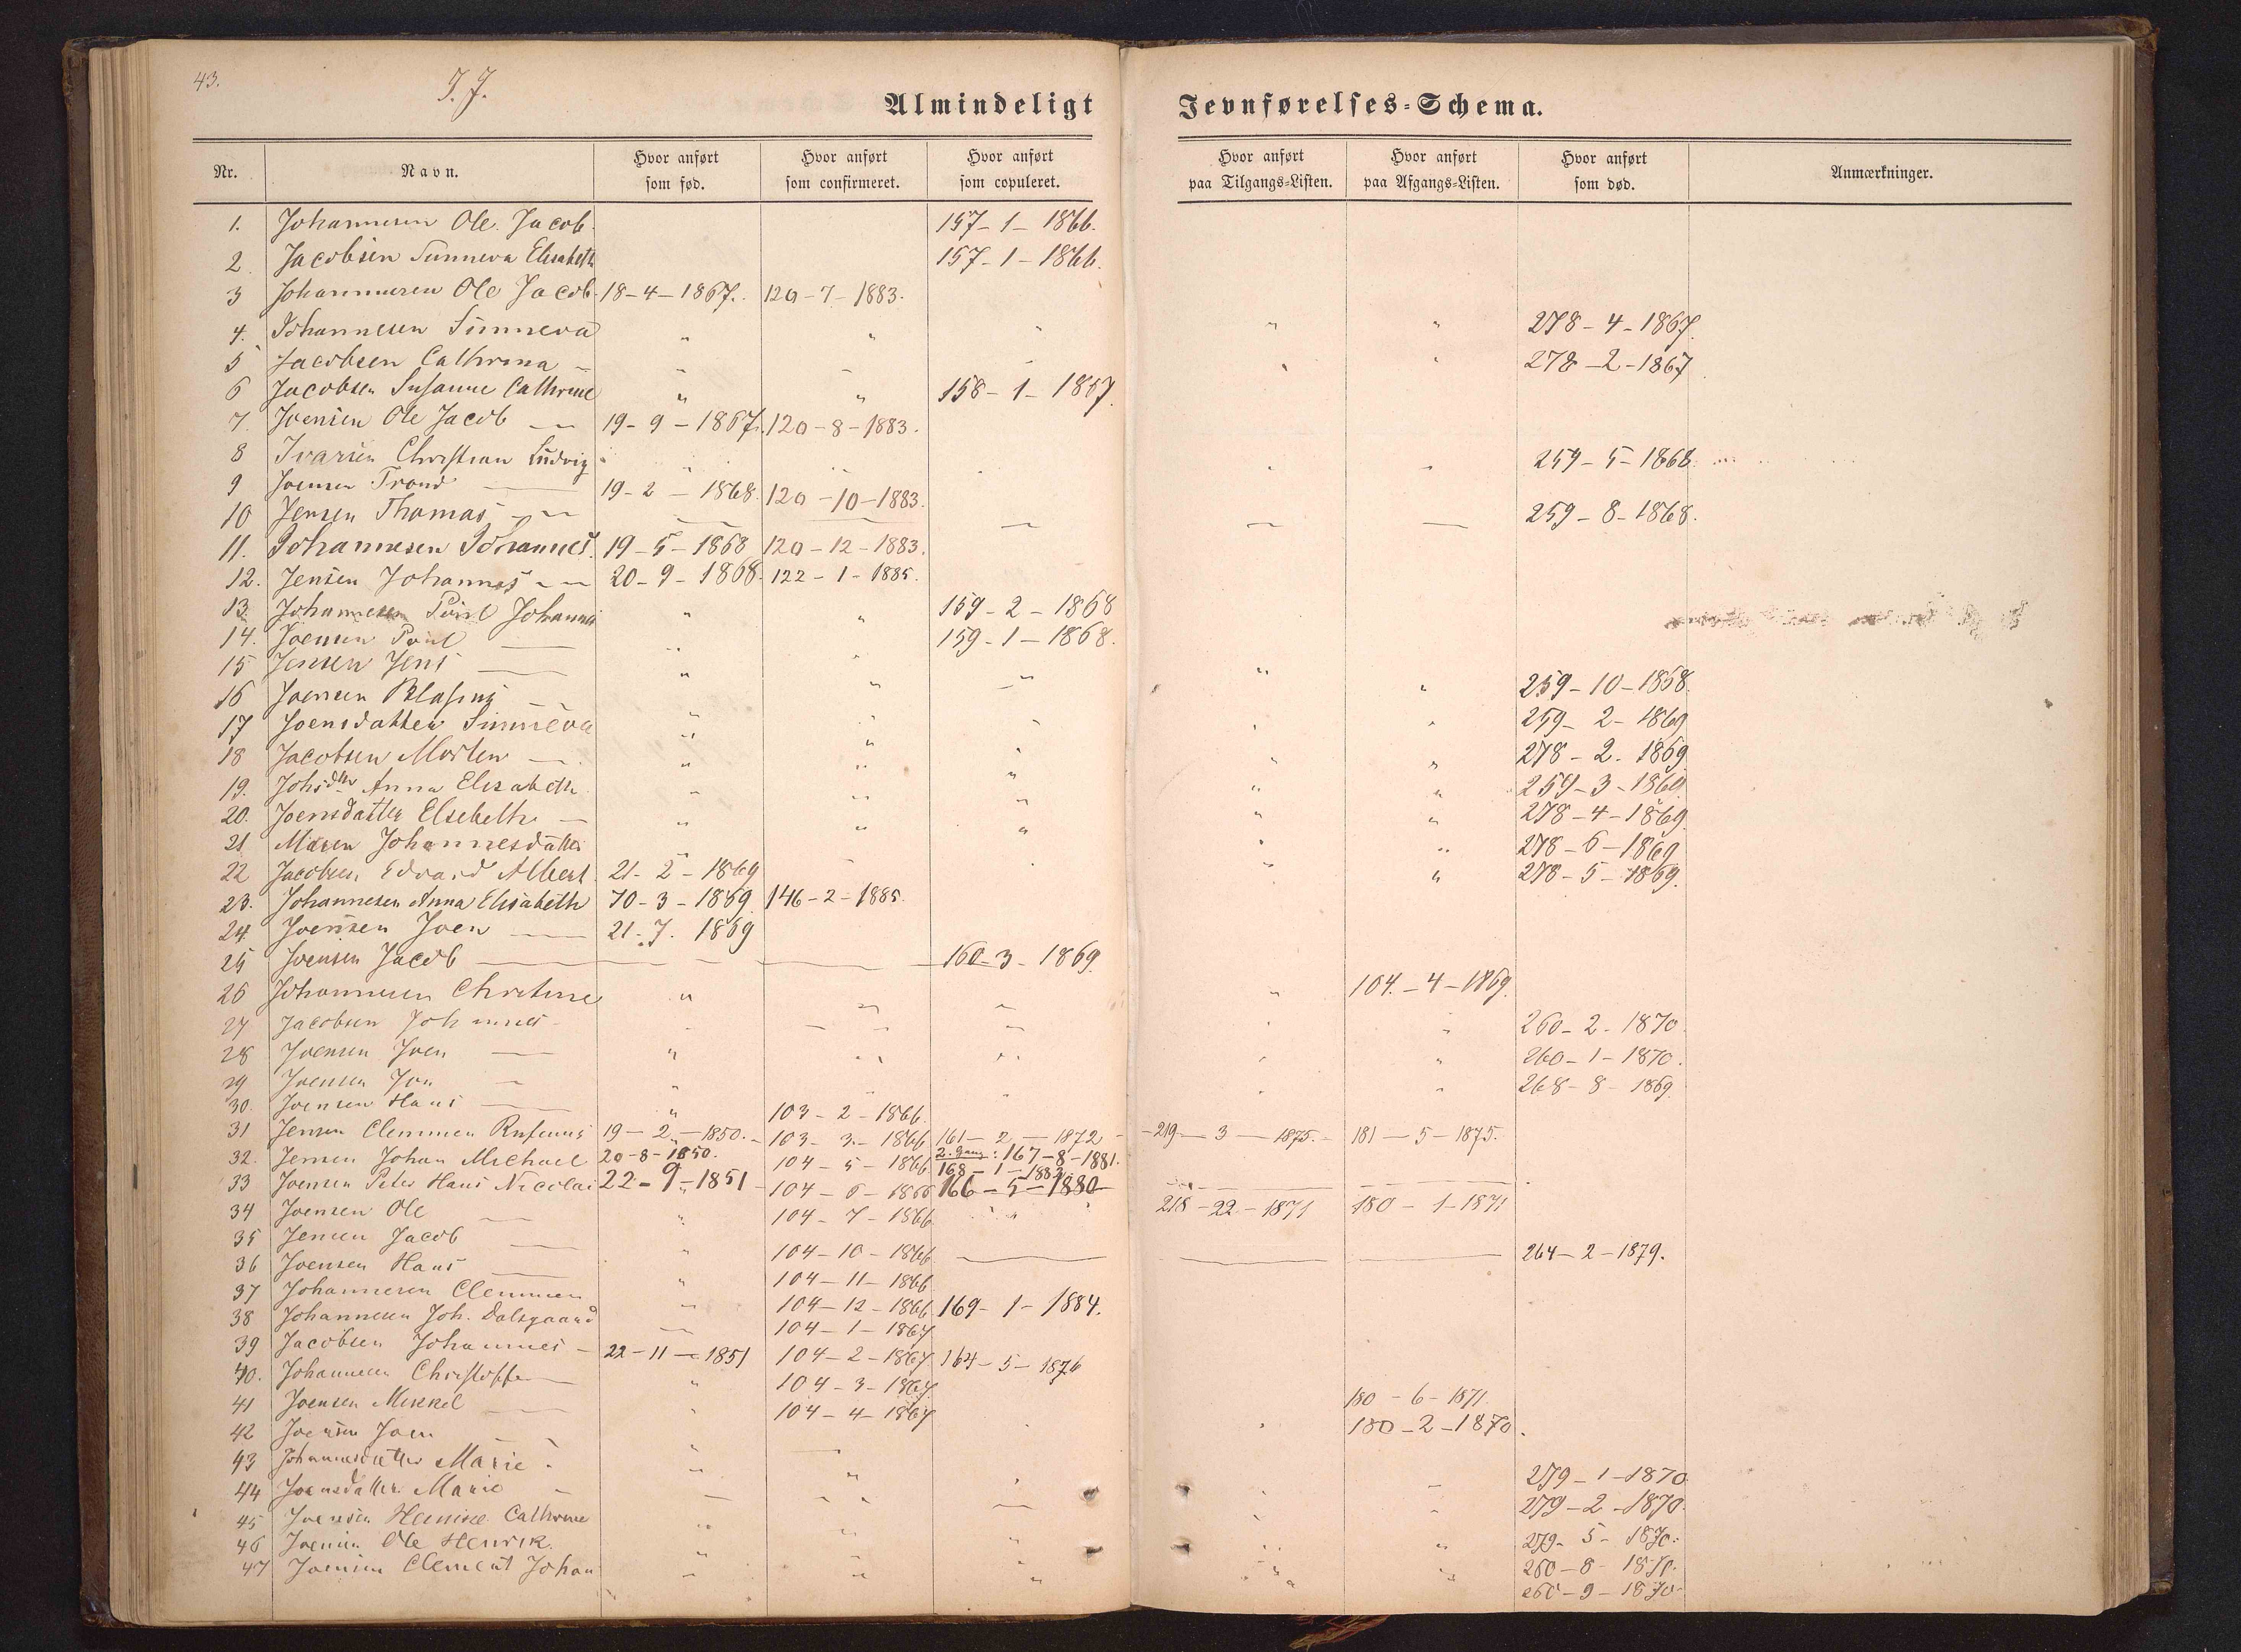 43.
I. J.
Almindeligt Jevnførelses-Schema.
Nr. Navn. Hvor anført som fød. Hvor anført som confirmeret. Hvor anført som copuleret. Hvor anført paa Tilgangs-Listen. Hvor anført paa Afgangs-Listen. Hvor anført som død. Anmærkninger.
1. Johannesen Ole Jacob. 157-1-1866.
2. Jacobsen Sunneva Elisabeth 157-1-1866.
3 Johannesen Ole Jacob 18-4-1867. 120-7-1883.
4. Johannesen Sunneva " " " " " 278-4-1867
5 Jacobsen Cathrina 278-2-1867
6 Jacobsen Susanne Cathrine " " 158-1-1867.
7. Joensen Ole Jacob 19-9-1867. 120-8-1883.
8 Ivarsen Christian Ludvig 259-5-1868
9 Joensen Trond 19-2-1868. 120-10-1883.
10 Jensen Thomas 259-8-1868.
11. Johannesen Johannes. 19-5-1868 120-12-1883.
12. Jensen Johannes 20-9-1868. 122-1-1885.
13. Johannesen Poul Johannes " " 159-2-1868
14. Joensen Poul 159-1-1868.
15 Jensen Jens
16 Joensen Blasius 259-10-1868.
17 Joensdatter Sunneva 259-2-1869
18 Jacobsen Morten 278-2-1869
19. Johsdtr Anna Elisabeth 259-3-1869
20. Joensdatter Elsebeth 278-4-1869
21 Maren Johannesdatter 278-6-1869
22 Jacobsen Edvard Albert. 21-2-1869 278-5-1869.
23. Johannesen Anna Elisabeth 70-3-1869 146-2-1885.
24. Joensen Joen 21-7-1869
25 Joensen Jacob 160-3-1869.
26 Johannesen Christine " 104-4-1869.
27 Jacobsen Johannes 260-2-1870
28 Joensen Joen 260-1-1870.
29 Joensen Jon 268-8-1869
30. Joensen Hans 103-2-1866.
31 Jensen Clemmen Rasmus 19-2-1850. 103-3-1866 161-2-1872 219-3-1875. 181-5-1875.
32. Jensen Johan Michael 20-8-1850. 104-5-1866 2. Gang: 167-8-1881. 168-1-1883
33 Joensen Peter Hans Nicolai 22-9-1851 104-6-1866 166-5-1880
34 Joensen Ole 104-7-1866 218-22-1871 180-1-1871
35 Jensen Jacob 104-10-1866 264-2-1879.
36 Joensen Hans 104-11-1866
37 Johannesen Clemmen 104-12-1866 169-1-1884.
38 Johannesen Joh. Dalsgaard 104-1-1867
39 Jacobsen Johannes 22-11-1851 104-2-1867 164-5-1876
40. Johannesen Christoffer 104-3-1867.
41 Joensen Mikkel 104-4-1867 180-6-1871.
42 Joensen Joen 180-2-1870.
43 Johannesdatter Marie
44 Joensdatter Marie 279-1-1870
45 Joensen Cathrine 279-2-1870.
46 Joensen Ole Henrik. 279-5-1870.
47 Joensen Clement Johan 260-8-1870.
260-9-1870